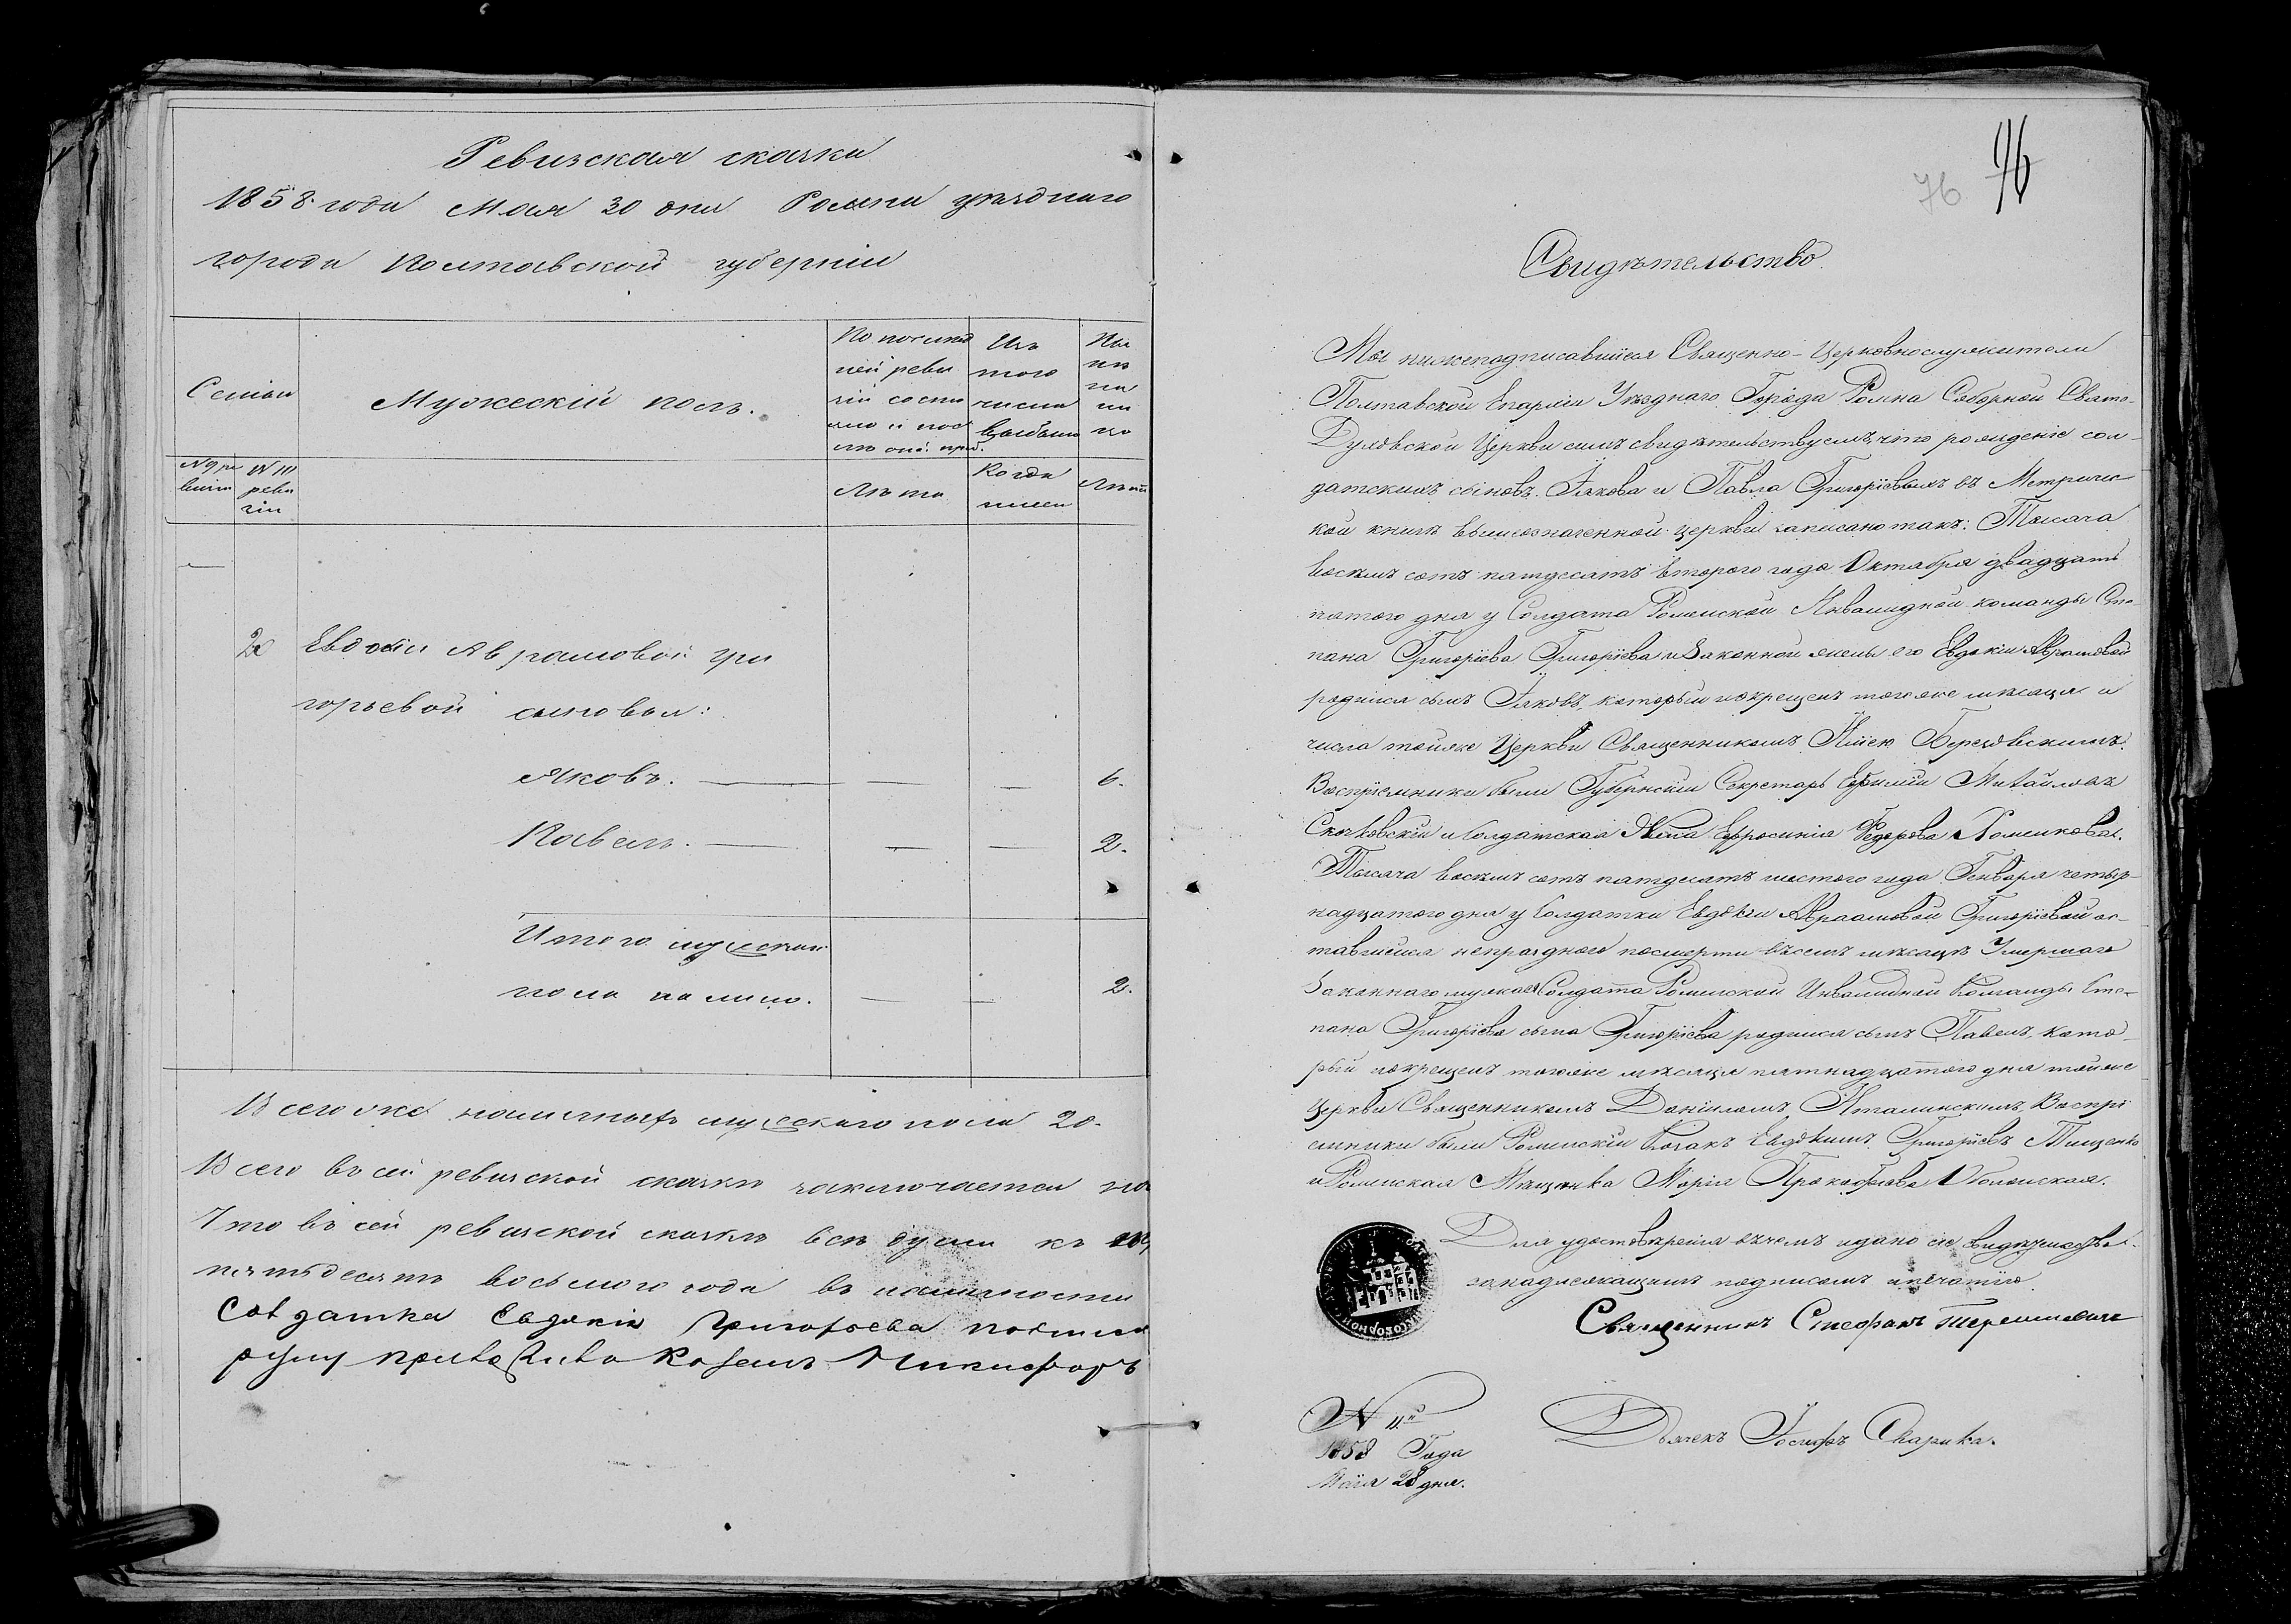 Ревизская сказка
1858 года Мая 30 дня Ромна уѣзднаго
города Полтавской губерніи
Семьи
Мужескій полъ.
По послѣд
ней реви
зіи состо
яло и посл
лѣ оной приб.
Изъ
того
числа
выбыло
Ны
нѣ
на
ли
цо
№ 9 ре
визіи
№ 10
реви
зіи
Лѣта
Когда
именно
Лѣта
2
Евдокіи Аврамовой Гри
горьевой сыновья:
Яковъ. — — — 6.
Павелъ. — — — 2.
Итого мужеска
пола на лицо. — — 2.
Всего же наличныхъ мужескаго пола 2.
Всего въ сей ревизской сказкѣ заключается на
Что въ сей ревизской сказкѣ всѣ души къ
пятьдесятъ восьмого года въ наличности
Солдатка Евдокія Григорьева
руку приложилъ Козакъ Никифоръ
76 76
Свидѣтельство.
Мы нижеподписавшіеся Священно-Церковнослужители
Полтавской Епархіи Уѣзднаго Города Ромна Соборной Свято-
Духовской Церкви симъ свидѣтельствуемъ, что рожденіе сол-
датскихъ сыновъ Іакова и Павла Григоріевыхъ въ Метричес-
кой книгѣ вышеозначенной церкви записано такъ: Тысяча
восемъ сотъ пятдесятъ второго года Октября двадцать
пятого дня у Солдата Роменской Инвалидной команды Сте-
пана Григоріева Григоріева и Законной жены его Евдокіи Аврамовой
родился сынъ Іаковъ, который и окрещенъ того же мѣсяца и
числа тойже Церкви Священникомъ Березовскимъ.
Воспріемники были Губернскій Секретарь Ефимій Михайловъ
и Солдатская Жена Ефросинія Федорова
Тысяча восемъ сотъ пятдесятъ шестого года Генваря четыр-
надцатого дня у Солдатки Евдокіи Авраамовой Григоріевой ос-
тавшейся непраздною посмерти въ семъ мѣсяцѣ Умершаго
Законнаго мужа ея Солдата Роменской Инвалидной Команды Сте-
пана Григоріева сына Григоріева родился сынъ Павелъ, кото-
рый и окрещенъ того же мѣсяца пятнадцатого дня тойже
Церкви Священникомъ Даніиломъ Воспрі
емники были Роменскій Козакъ Евдокимъ Григоріевъ Тищенко
и Роменская Мѣщанка Марія Прокофіева
Для удостовѣренія въ чемъ и дано сіе свидѣтельство
за надлежащимъ подписомъ и печатію
Священникъ Стефанъ Терешкевичъ
№ 11й
1858 Года
Мая 28 дня.
Дьячекъ Іосифъ